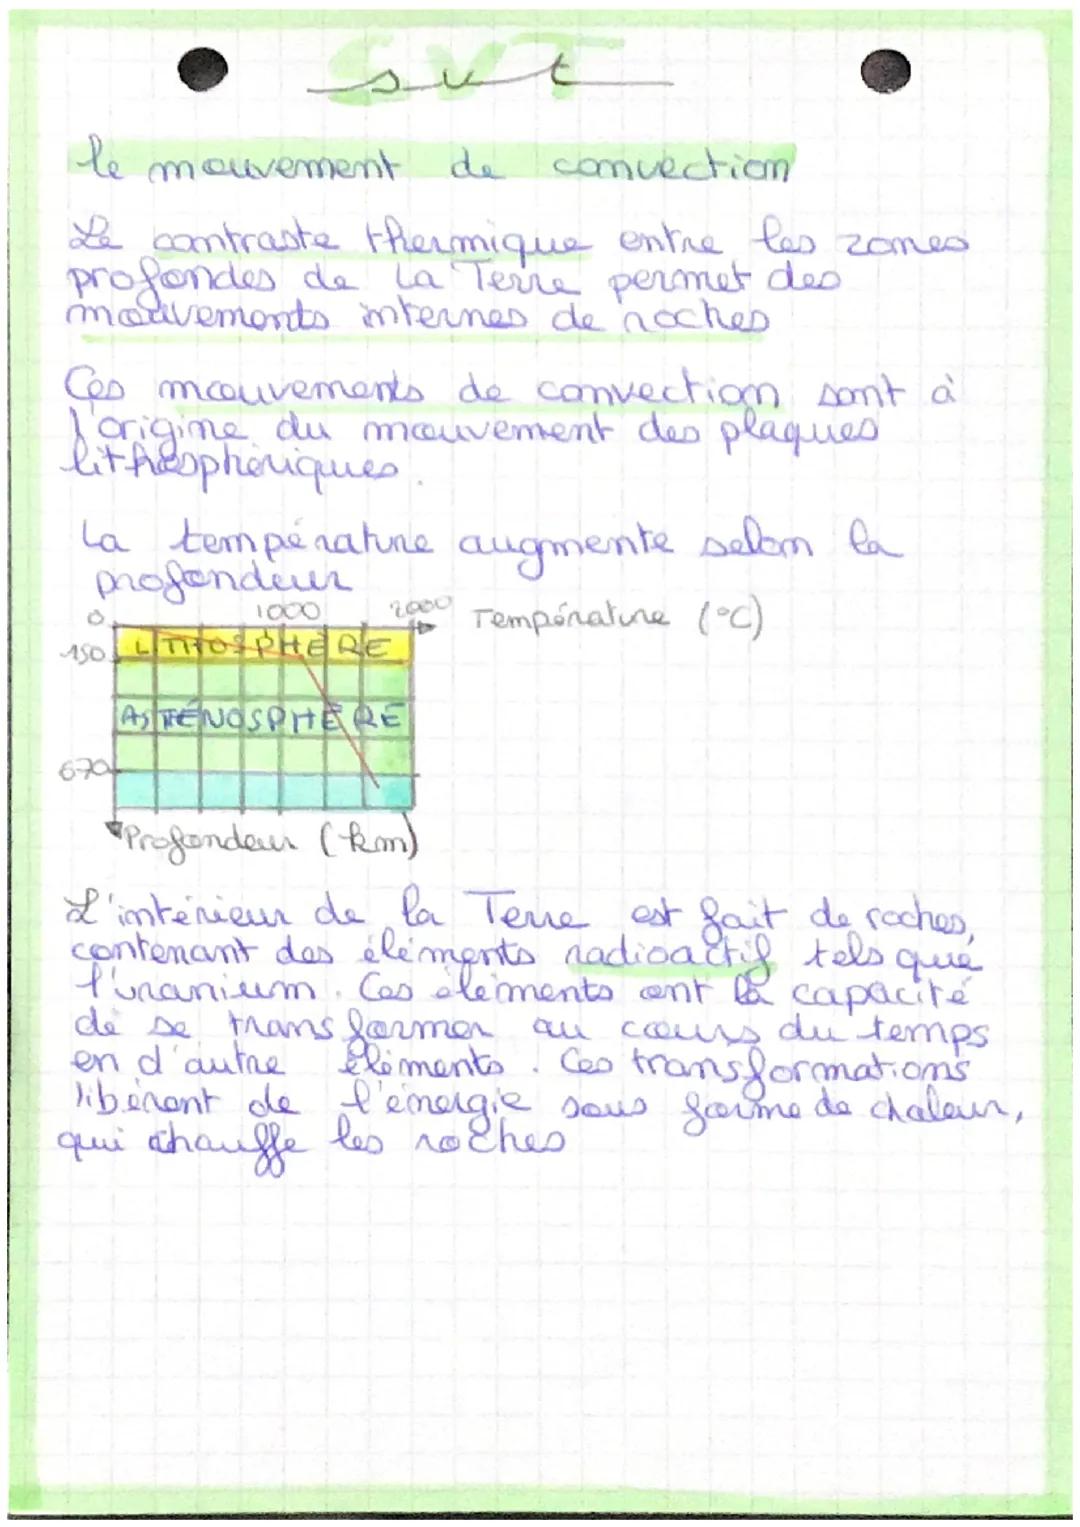 SVT
svt
le mouvement de convection
Le contraste thermique entre les zones
profondes de la Terre permet des
mouvements internes de roches
Ces mouvements de convection sont à
l'origine du mouvement des plaques
lithosphériques.
La température augmente selon la
profondeur
0 1000 2000 Température (°C)
150 LITHOSPHERE
ASTÉNOSPHÈRE
670
Profondeur (km)
L'intérieur de la Terre est fait de roches,
contenant des éléments radioactif tels que
l'uranium. Ces éléments ont la capacité
de se transformer au cours du temps
en d'autre éléments. Ces transformations
libèrent de l'énergie sous forme de chaleur,
qui chauffe les roches